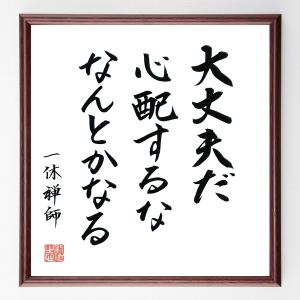 大丈夫だ
心配するな
なんとかなる
一休禅師